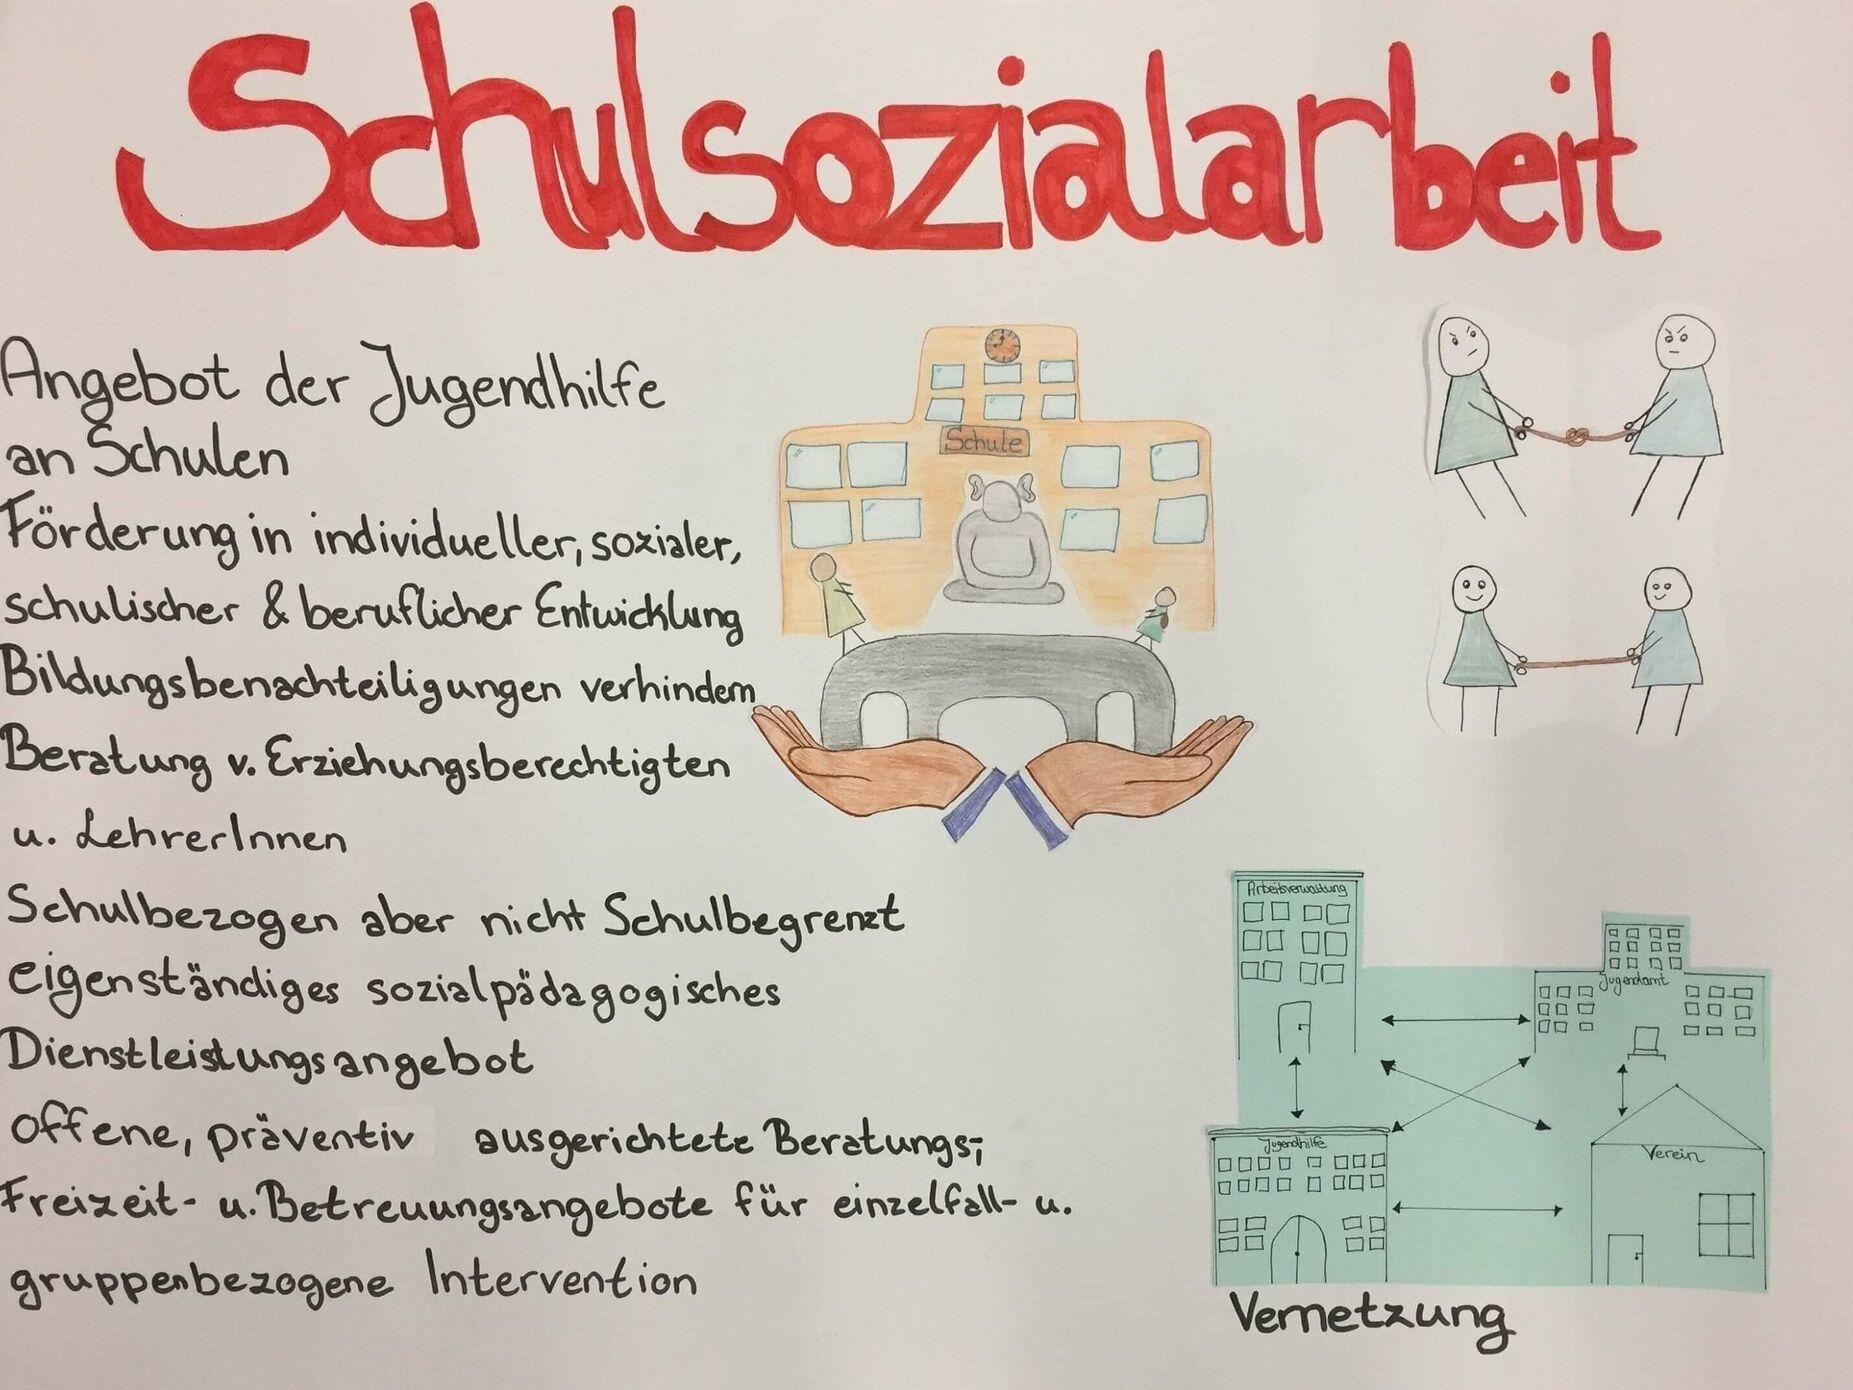 Schulsozialarbeit
Angebot der Jugendhilfe
an Schulen
Förderung in individueller, sozialer,
schulischer & beruflicher Entwicklung
Bildungsbenachteiligungen verhindern
Beratung v. Erziehungsberechtigten
u. LehrerInnen
Schulbezogen aber nicht Schulbegrenzt
eigenständiges sozialpädagogisches
Dienstleistungsangebot
offene, präventiv ausgerichtete Beratungs-,
Freizeit- u. Betreuungsangebote für einzelfall- u.
gruppenbezogene Intervention
Schule
Arbeitsverwaltung
Jugendamt
Jugendhilfe
Verein
Vernetzung